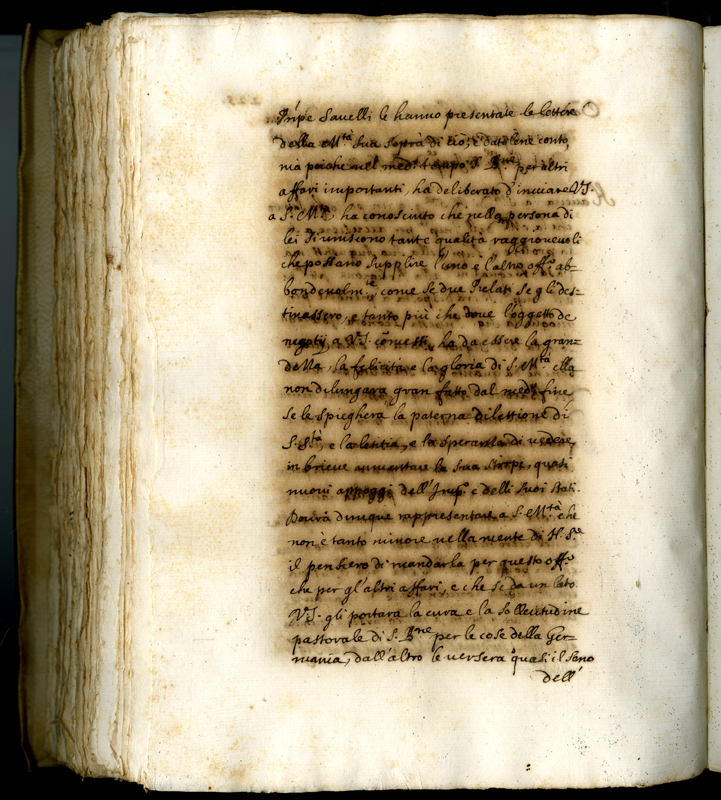 Prñpe Savelli le hanno presentate le lettere
della M.tà Sua sopra di ciò, e datolene conto,
mà poiche nel med.o tempo S. B.ne per altri
affari importanti, ha deliberato d'inviare V.S.
a S. M.tà, ha conosciuto che nella persona di
lei si uniscono tante qualità raggionevoli
che possano supplire l'uno e l'altro off.o ab-
bondevolm.te come se due Prelati se gli des-
tinassero, e tanto più che dove l'oggetto de
negotij, a V.S. ha da essere la gran-
dezza, la felicità, e la gloria di S. M.tà ella
non dilungarà gran fatto dal med.o fine
se le spiegherà la paterna dilettione di
S. S.tà, e la letitia, e la speranza di vedere
in brieve aumentare la sua stirpe, quasi
nuovi appoggi dell'Imp.o e delli suoi stati.
Dovrà dunque rappresentare a S. M.tà che
non è tanto minore nella mente di N. S.re
il pensiero di mandarla per questo off.o
che per gl'altri affari, e che se da un lato
V.S. gli portarà la cura e la sollecitudine
pastorale di S. B.ne per le cose della Ger-
mania, dall'altro le verserà quasi il seno
dell'